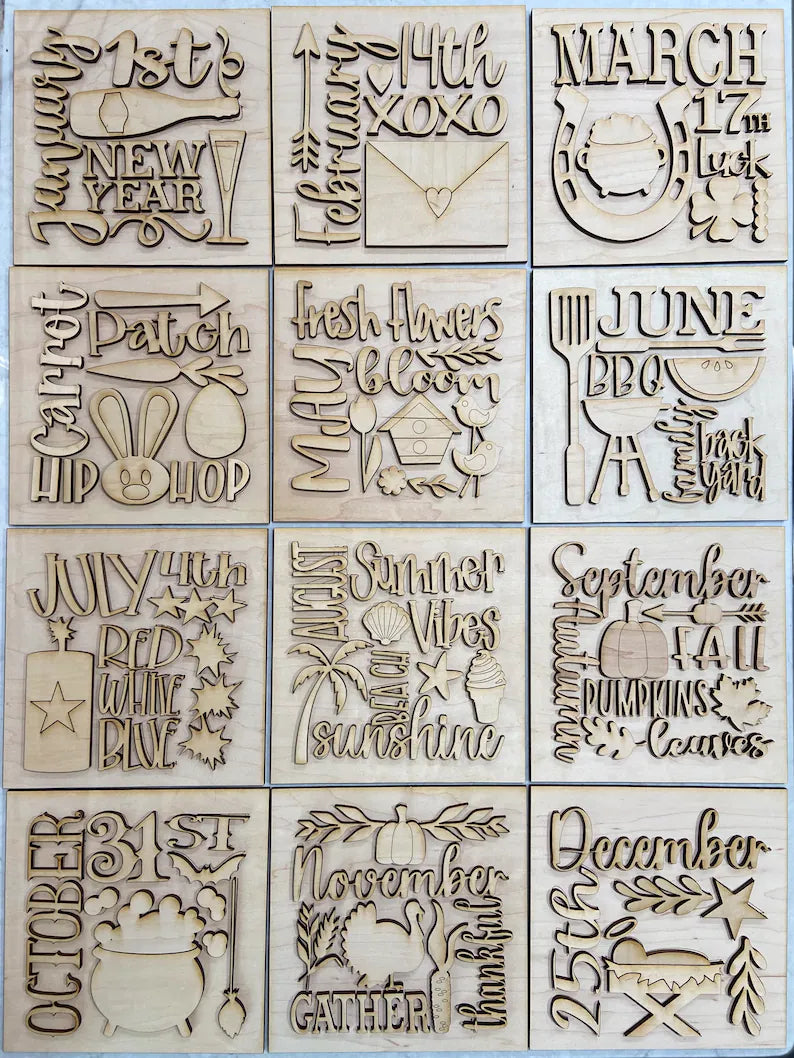 January
1st
NEW
YEAR
February
14th
XOXO
MARCH
17TH
Luck
Carrot
Patch
HIP HOP
Fresh flowers
MAY
bloom
JUNE
BBQ
family
back
yard
JULY 4th
RED
WHITE
BLUE
AUGUST
Summer
Vibes
BEACH
sunshine
September
Autumn
FALL
PUMPKINS
leaves
OCTOBER
31ST
November
thankful
GATHER
December
25th